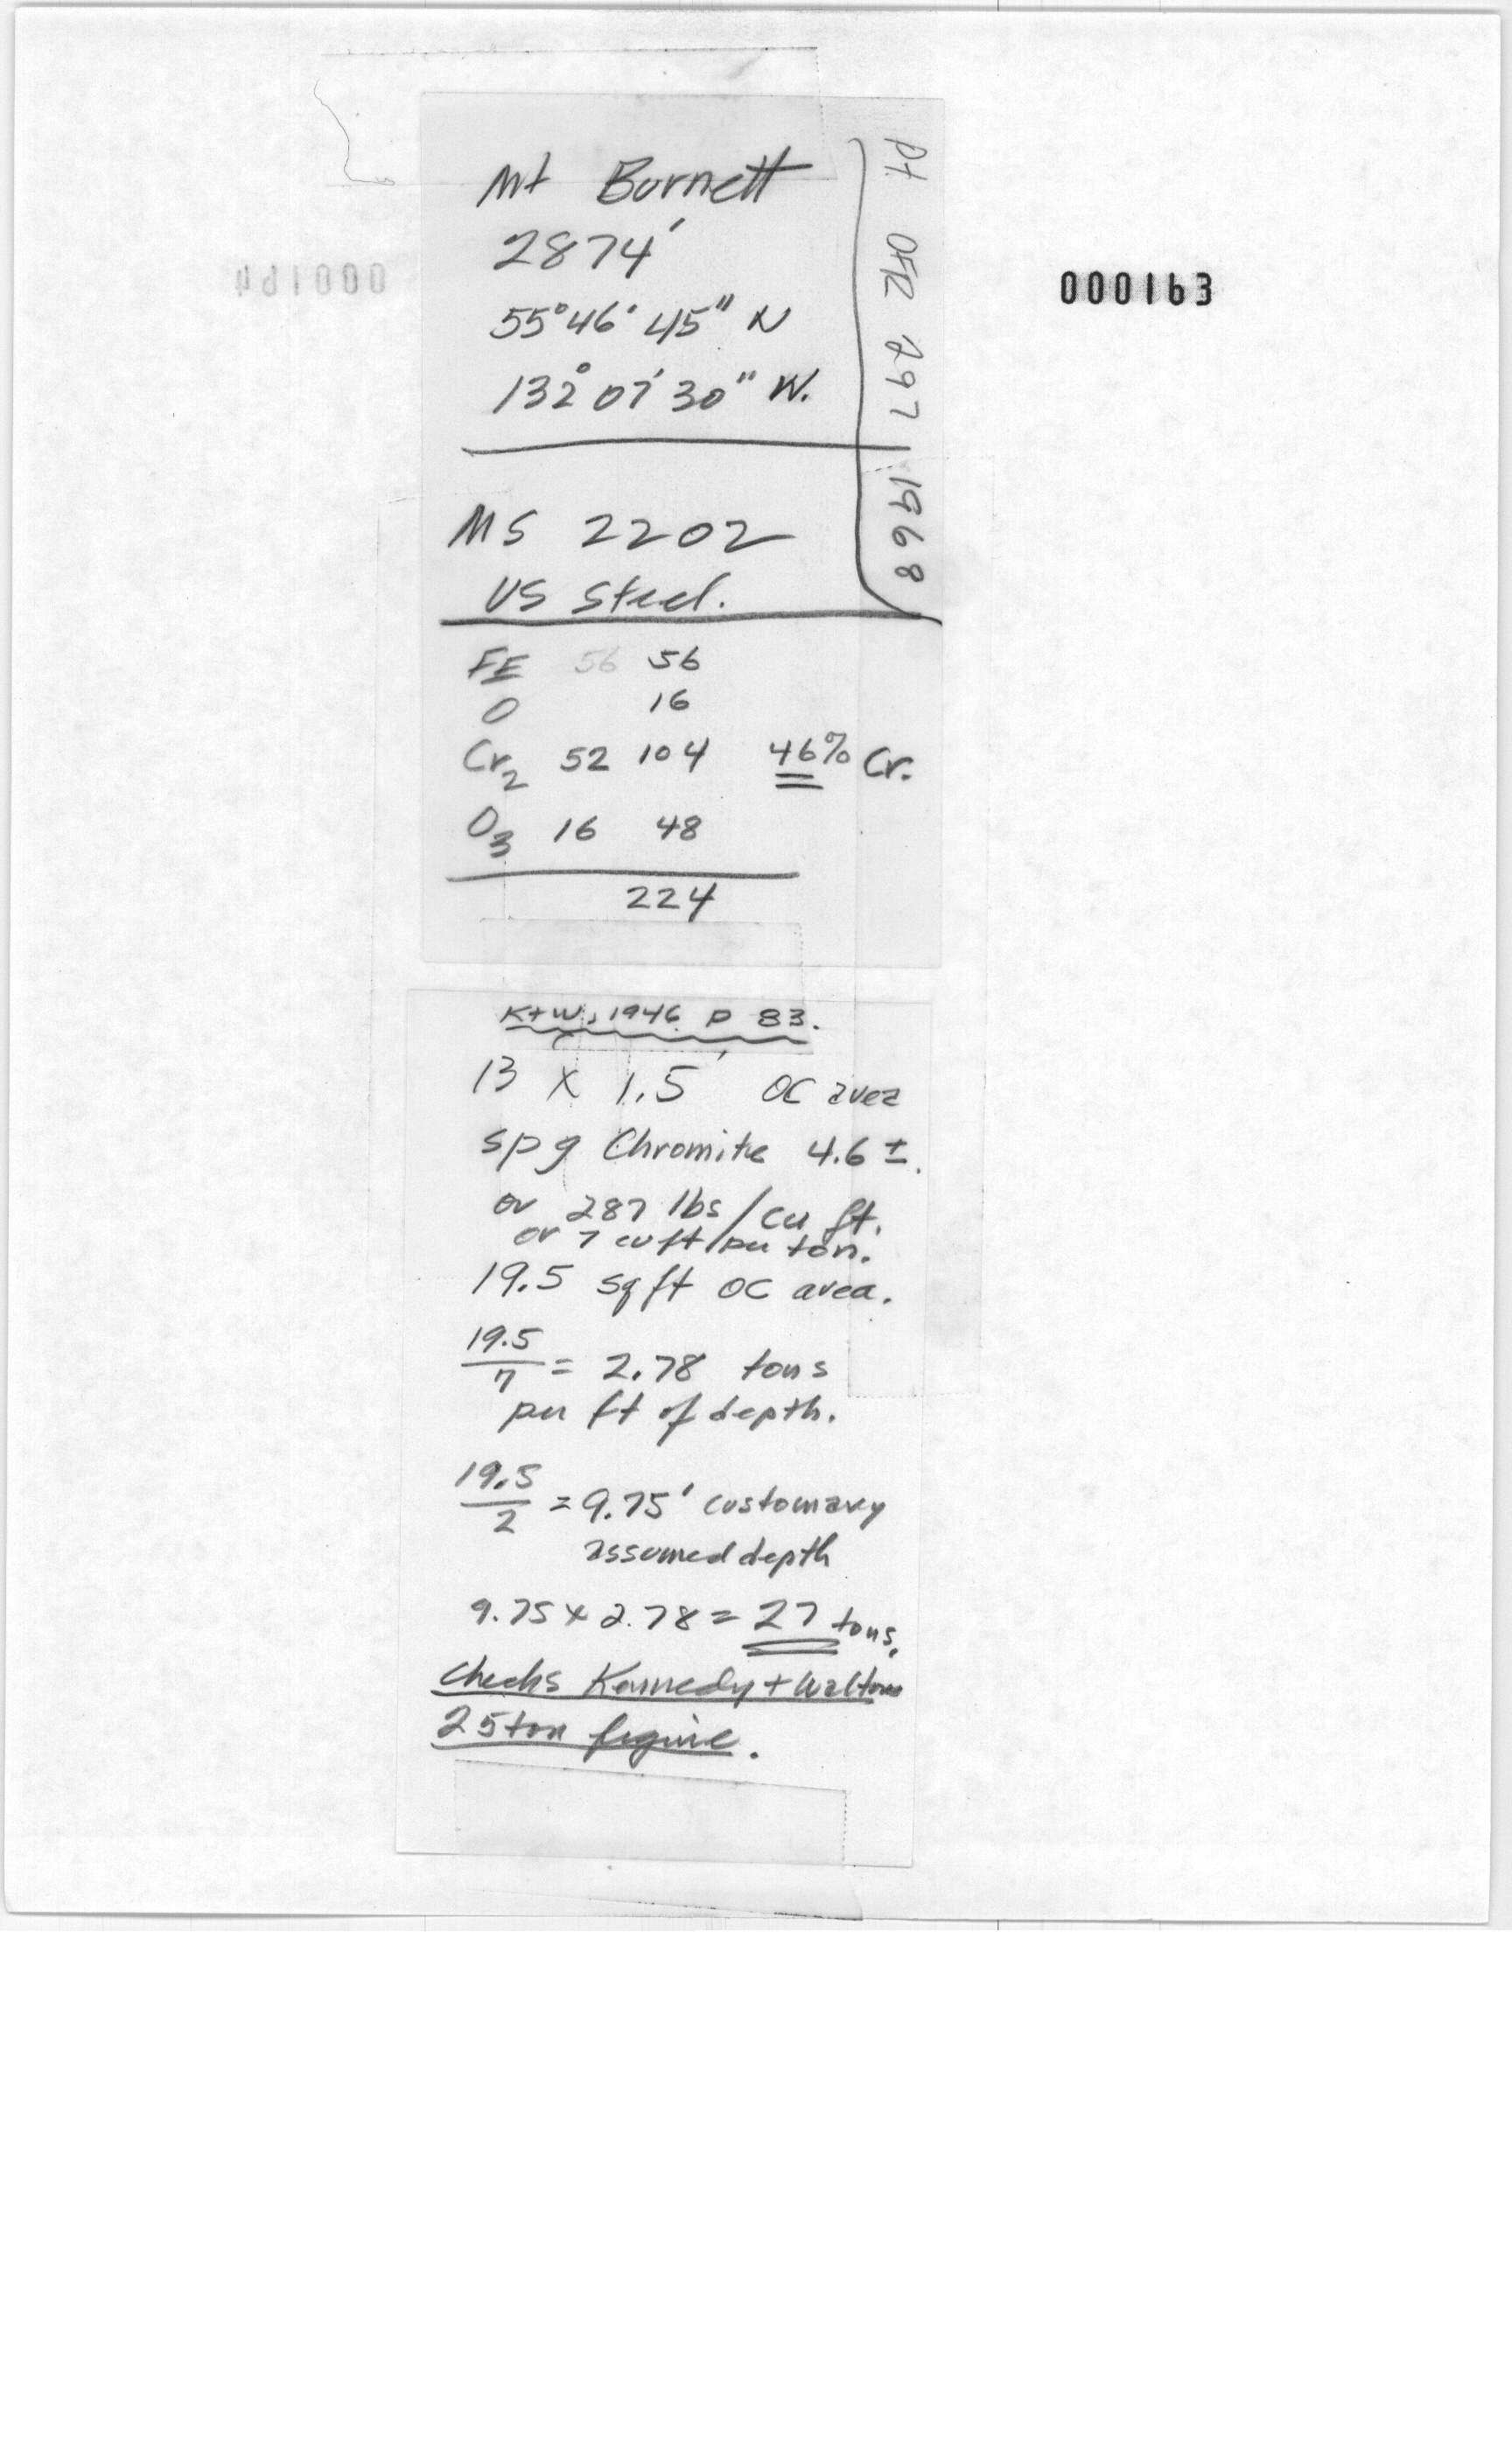 Mt Burnett
2874'
55° 46' 45" N
132° 07' 30" W.
Pt OFR 297 1968
000163
MS 2202
US Steel.
FE 56 56
O 16
Cr2 52 104 46% Cr.
O3 16 48
224
K+W, 1946 p 83.
13 x 1.5' OC area
sp g Chromite 4.6 ±.
or 287 lbs/cu ft.
or 7 cu ft/per ton.
19.5 sq ft OC area.
19.5/7 = 2.78 tons
per ft of depth.
19.5/2 = 9.75' customary
assumed depth
9.75 x 2.78 = 27 tons.
Checks Kennedy + Waltons
25 ton figure.